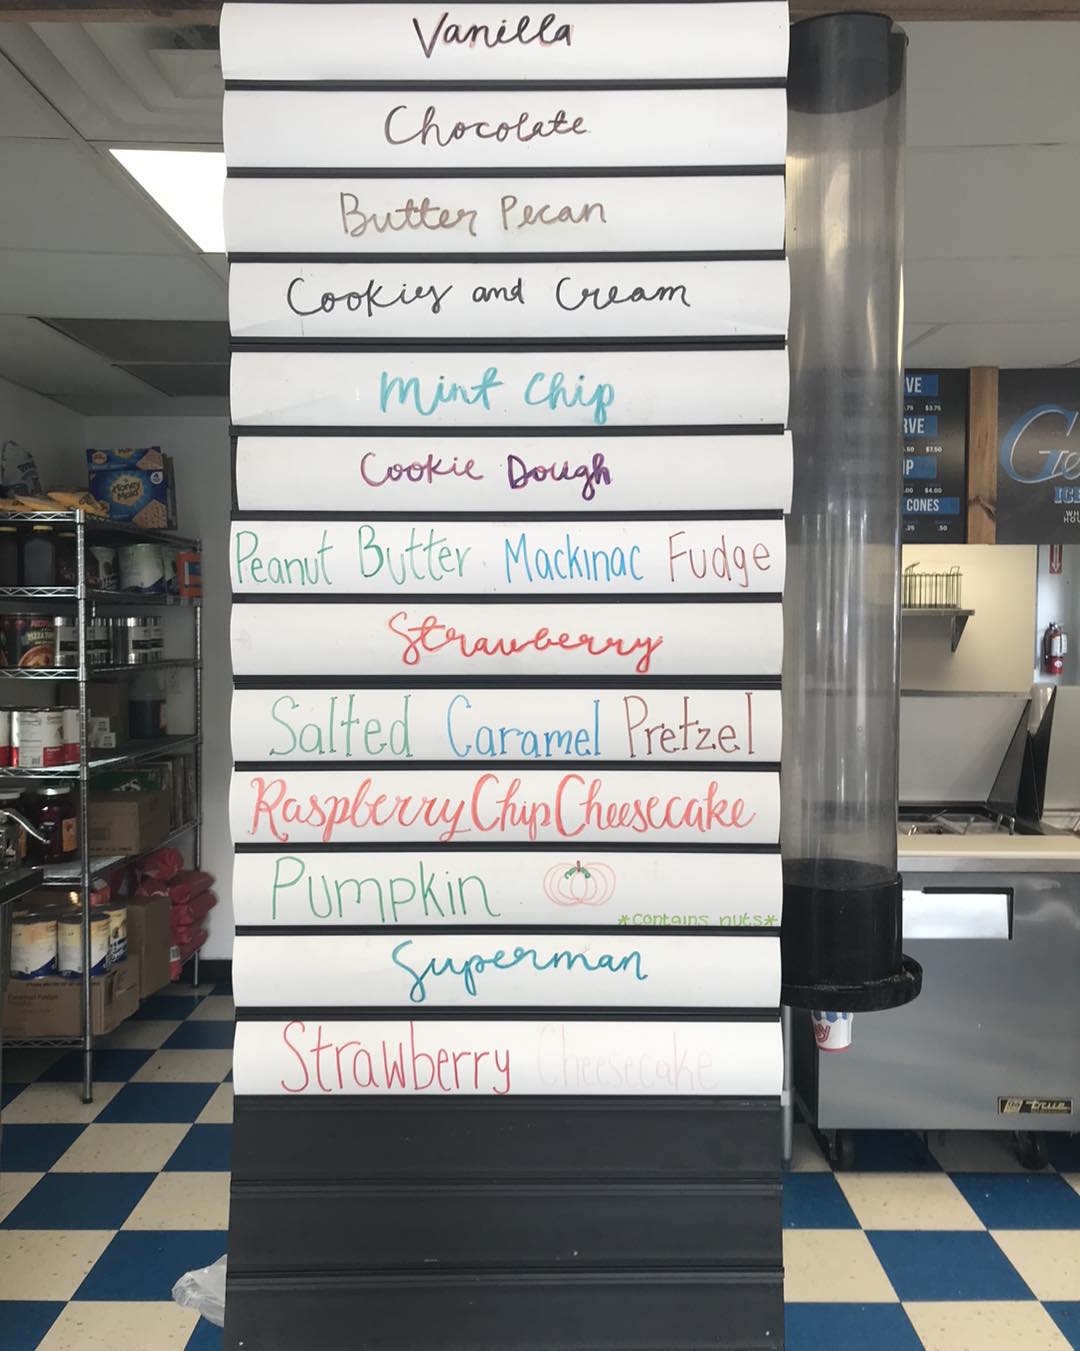 Vanilla
Chocolate
Butter Pecan
Cookies and Cream
Mint Chip
Cookie Dough
Peanut Butter Mackinac Fudge
Strawberry
Salted Caramel Pretzel
Raspberry Chip Cheesecake
Pumpkin
*contains nuts*
Superman
Strawberry Cheesecake
Honey Maid
VE
$3.75
RVE
$7.50
IP
$4.00
CONES
.25 .50
Ge
ICE
WH
HOU
true